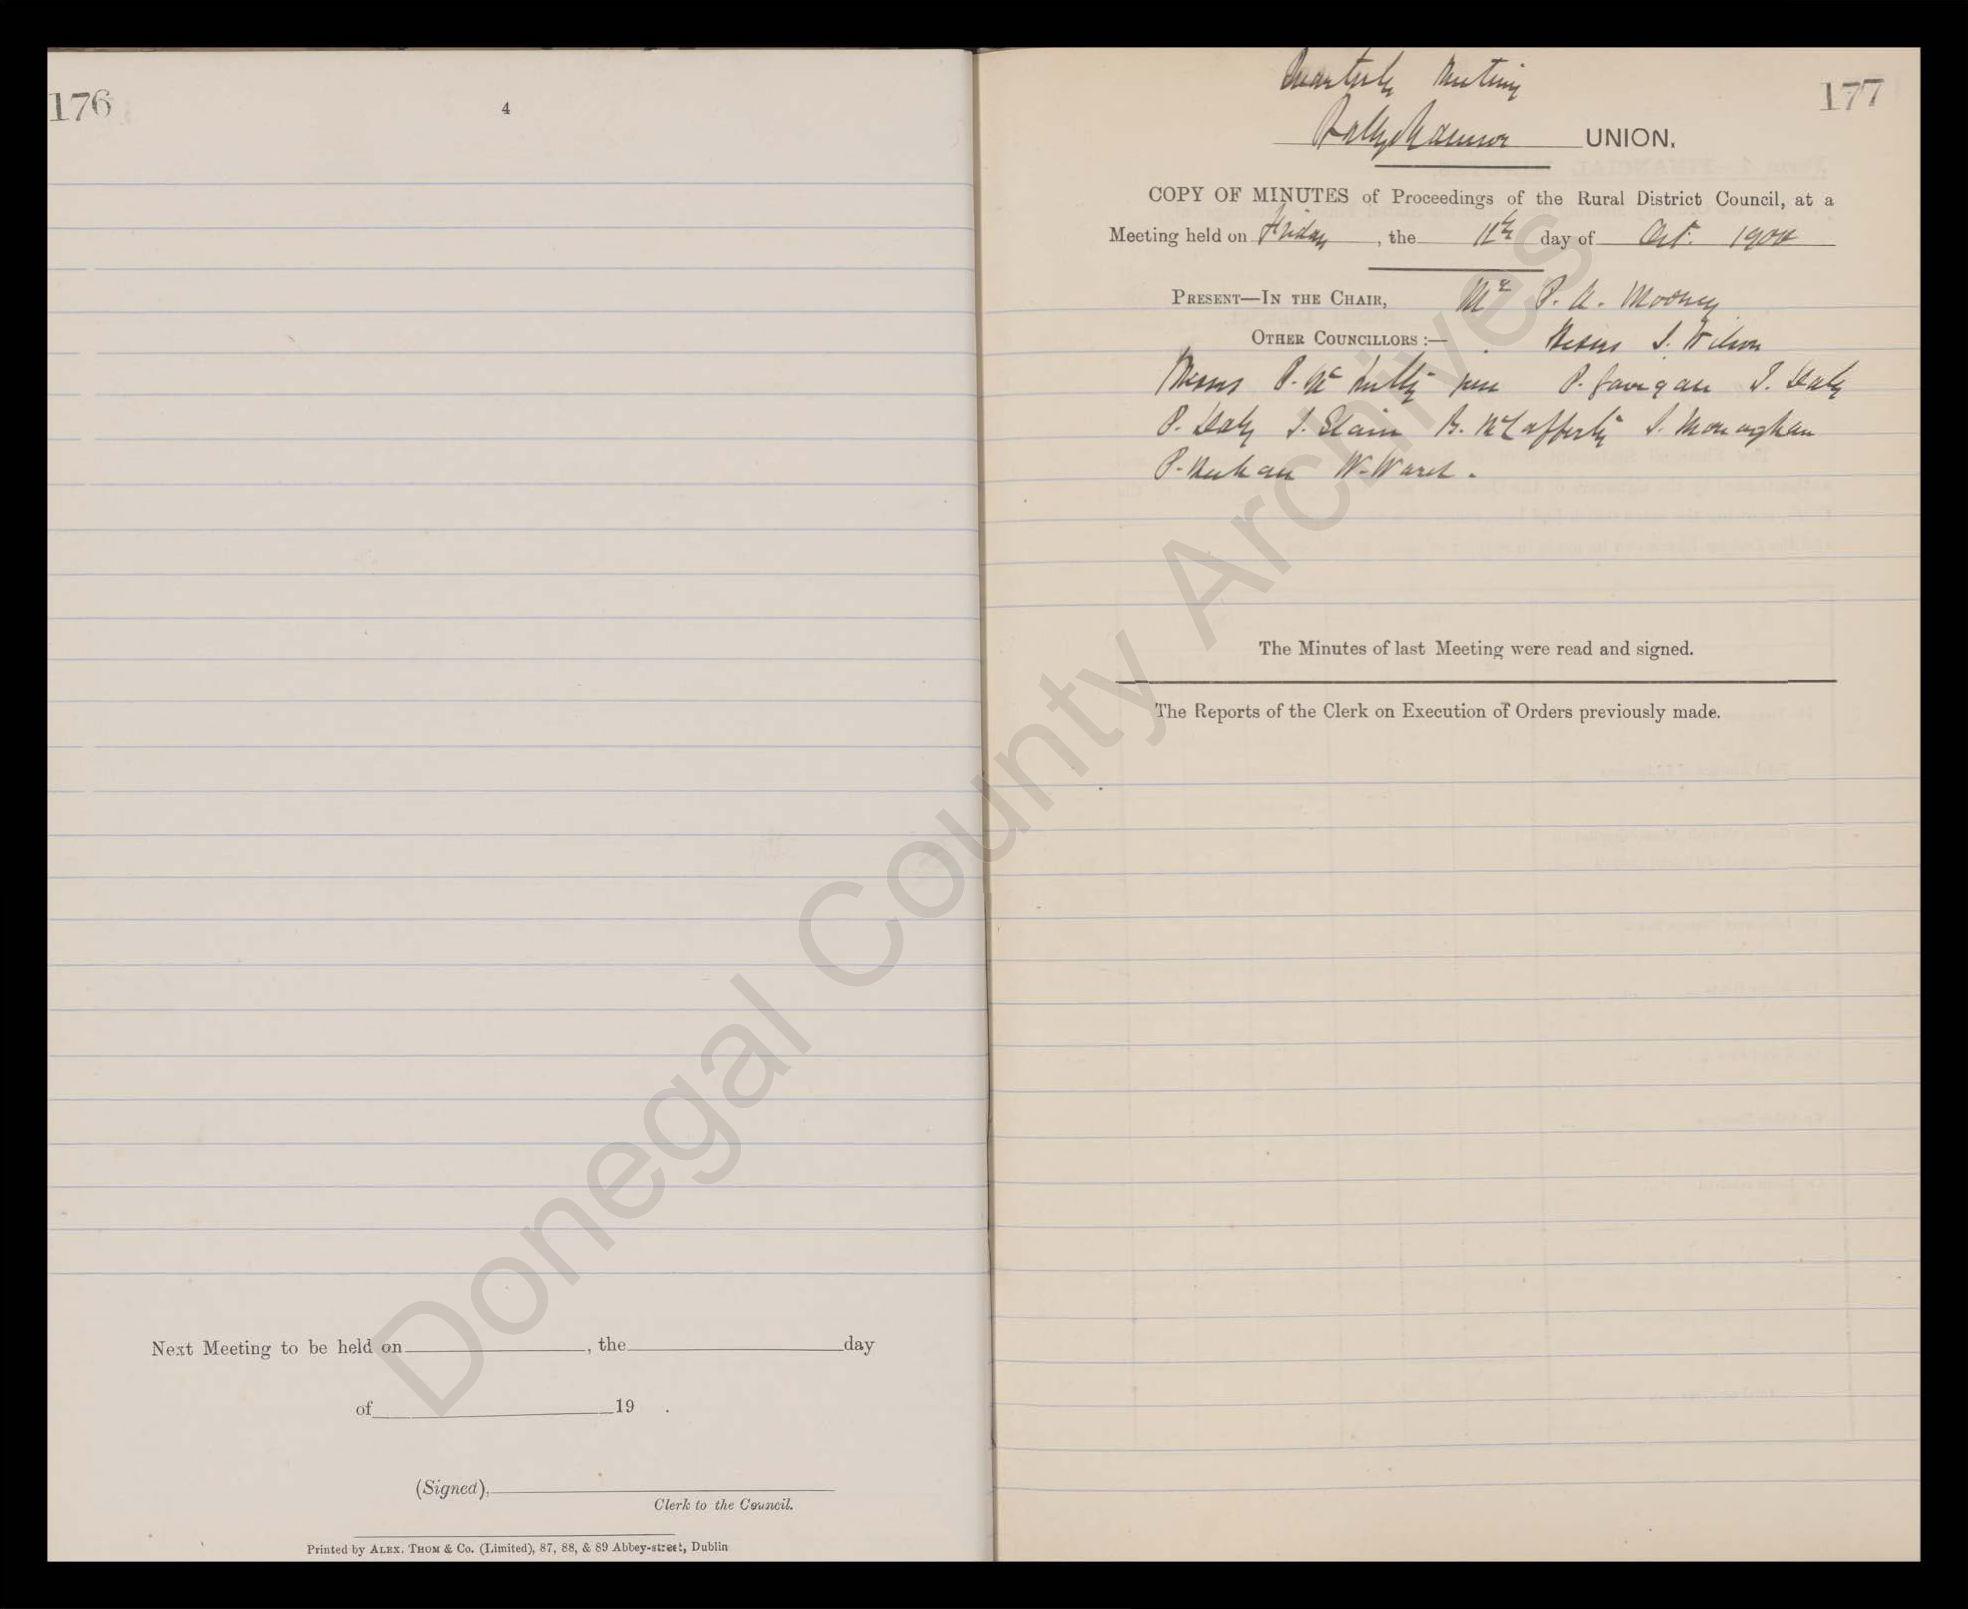 176
4
Next Meeting to be held on , the day
of 19 .
(Signed),
Clerk to the Council.
Printed by ALEX. THOM & Co. (Limited), 87, 88, & 89 Abbey-street, Dublin
177
Quarterly Meeting
Ballyshannon UNION.
COPY OF MINUTES of Proceedings of the Rural District Council, at a
Meeting held on Friday , the 11th day of Oct.
PRESENT—IN THE CHAIR, Mr P. A. Mooney
OTHER COUNCILLORS :— Messrs J. Wilson
Messrs P. Mc Nulty P. Gavigan J. Daly
P. Daly J. Slain B. McCafferty J. Monaghan
P. Meehan W. Ward.
The Minutes of last Meeting were read and signed.
The Reports of the Clerk on Execution of Orders previously made.
Donegal County Archives